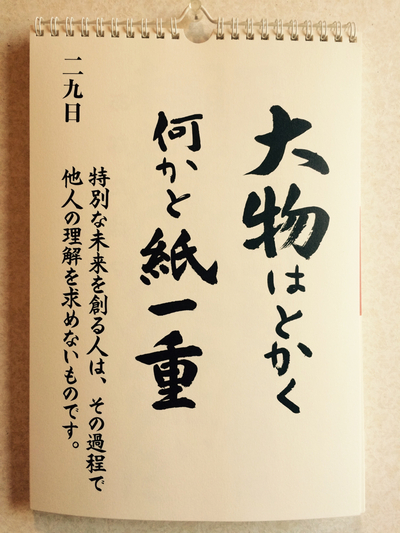 大物はとかく
何かと紙一重
特別な未来を創る人は、その過程で
他人の理解を求めないものです。
二九日